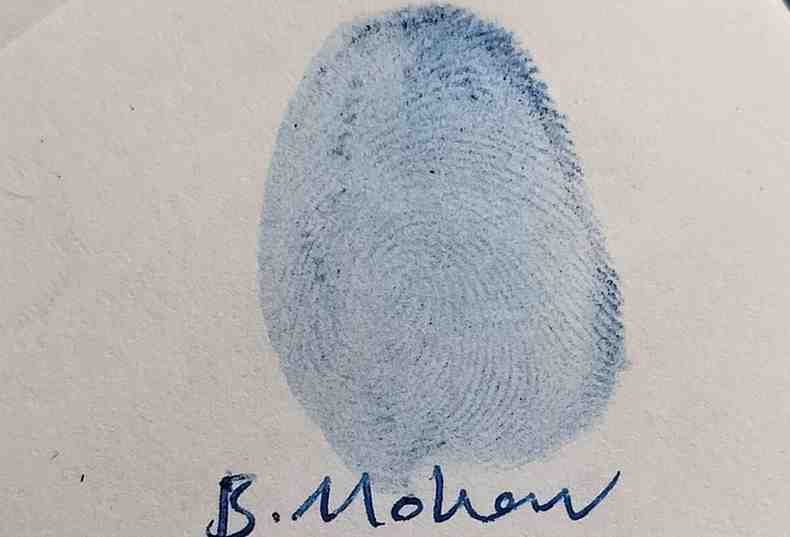 B. Mohan